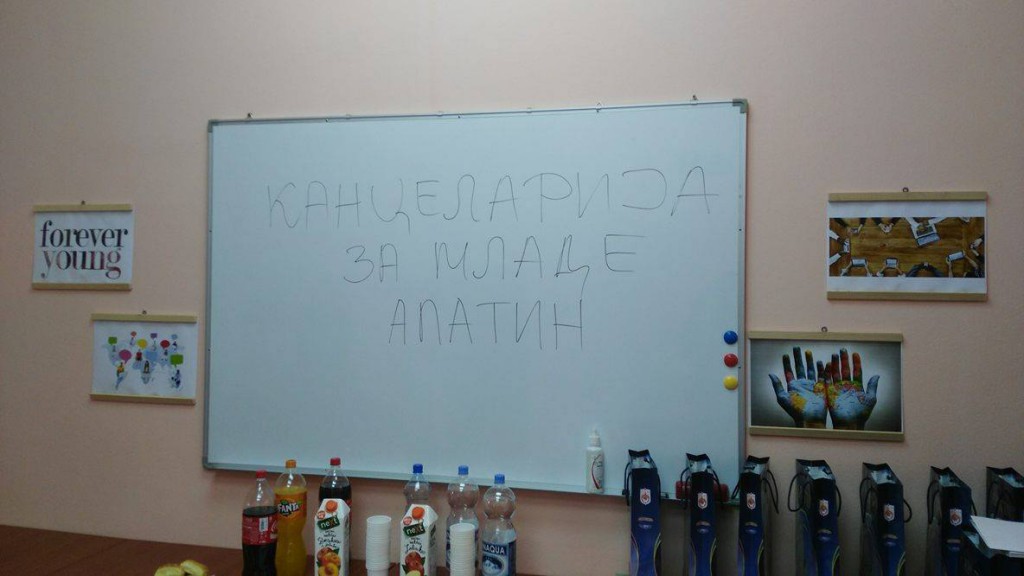 КАНЦЕЛАРИЈА
ЗА МЛАДЕ
АПАТИН
forever
young
FANTA
next
next
AQUA